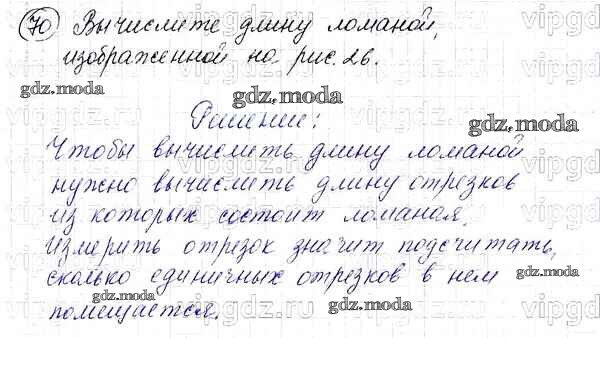 70 Вычислите длину ломаной,
изображенной на рис. 26.
Решение:
Чтобы вычислить длину ломаной
нужно вычислить длину отрезков
из которых состоит ломаная.
Измерить отрезок значит подсчитать,
сколько единичных отрезков в нем
помещается.
gdz.moda
gdz.moda
gdz.moda
gdz.moda
gdz.moda
gdz.moda
gdz.moda
vipgdz